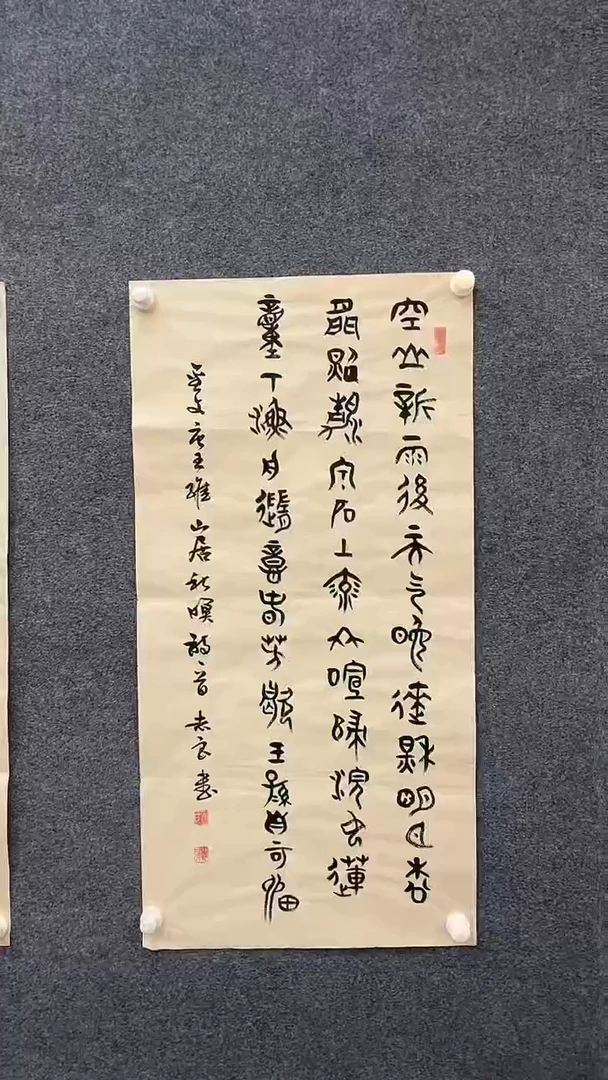 空山新雨後天气晚來秋明月松
間照清泉石上流竹喧歸浣女蓮
動下漁舟隨意春芳歇王孫自可留
金文唐王維山居秋暝詩一首志良書